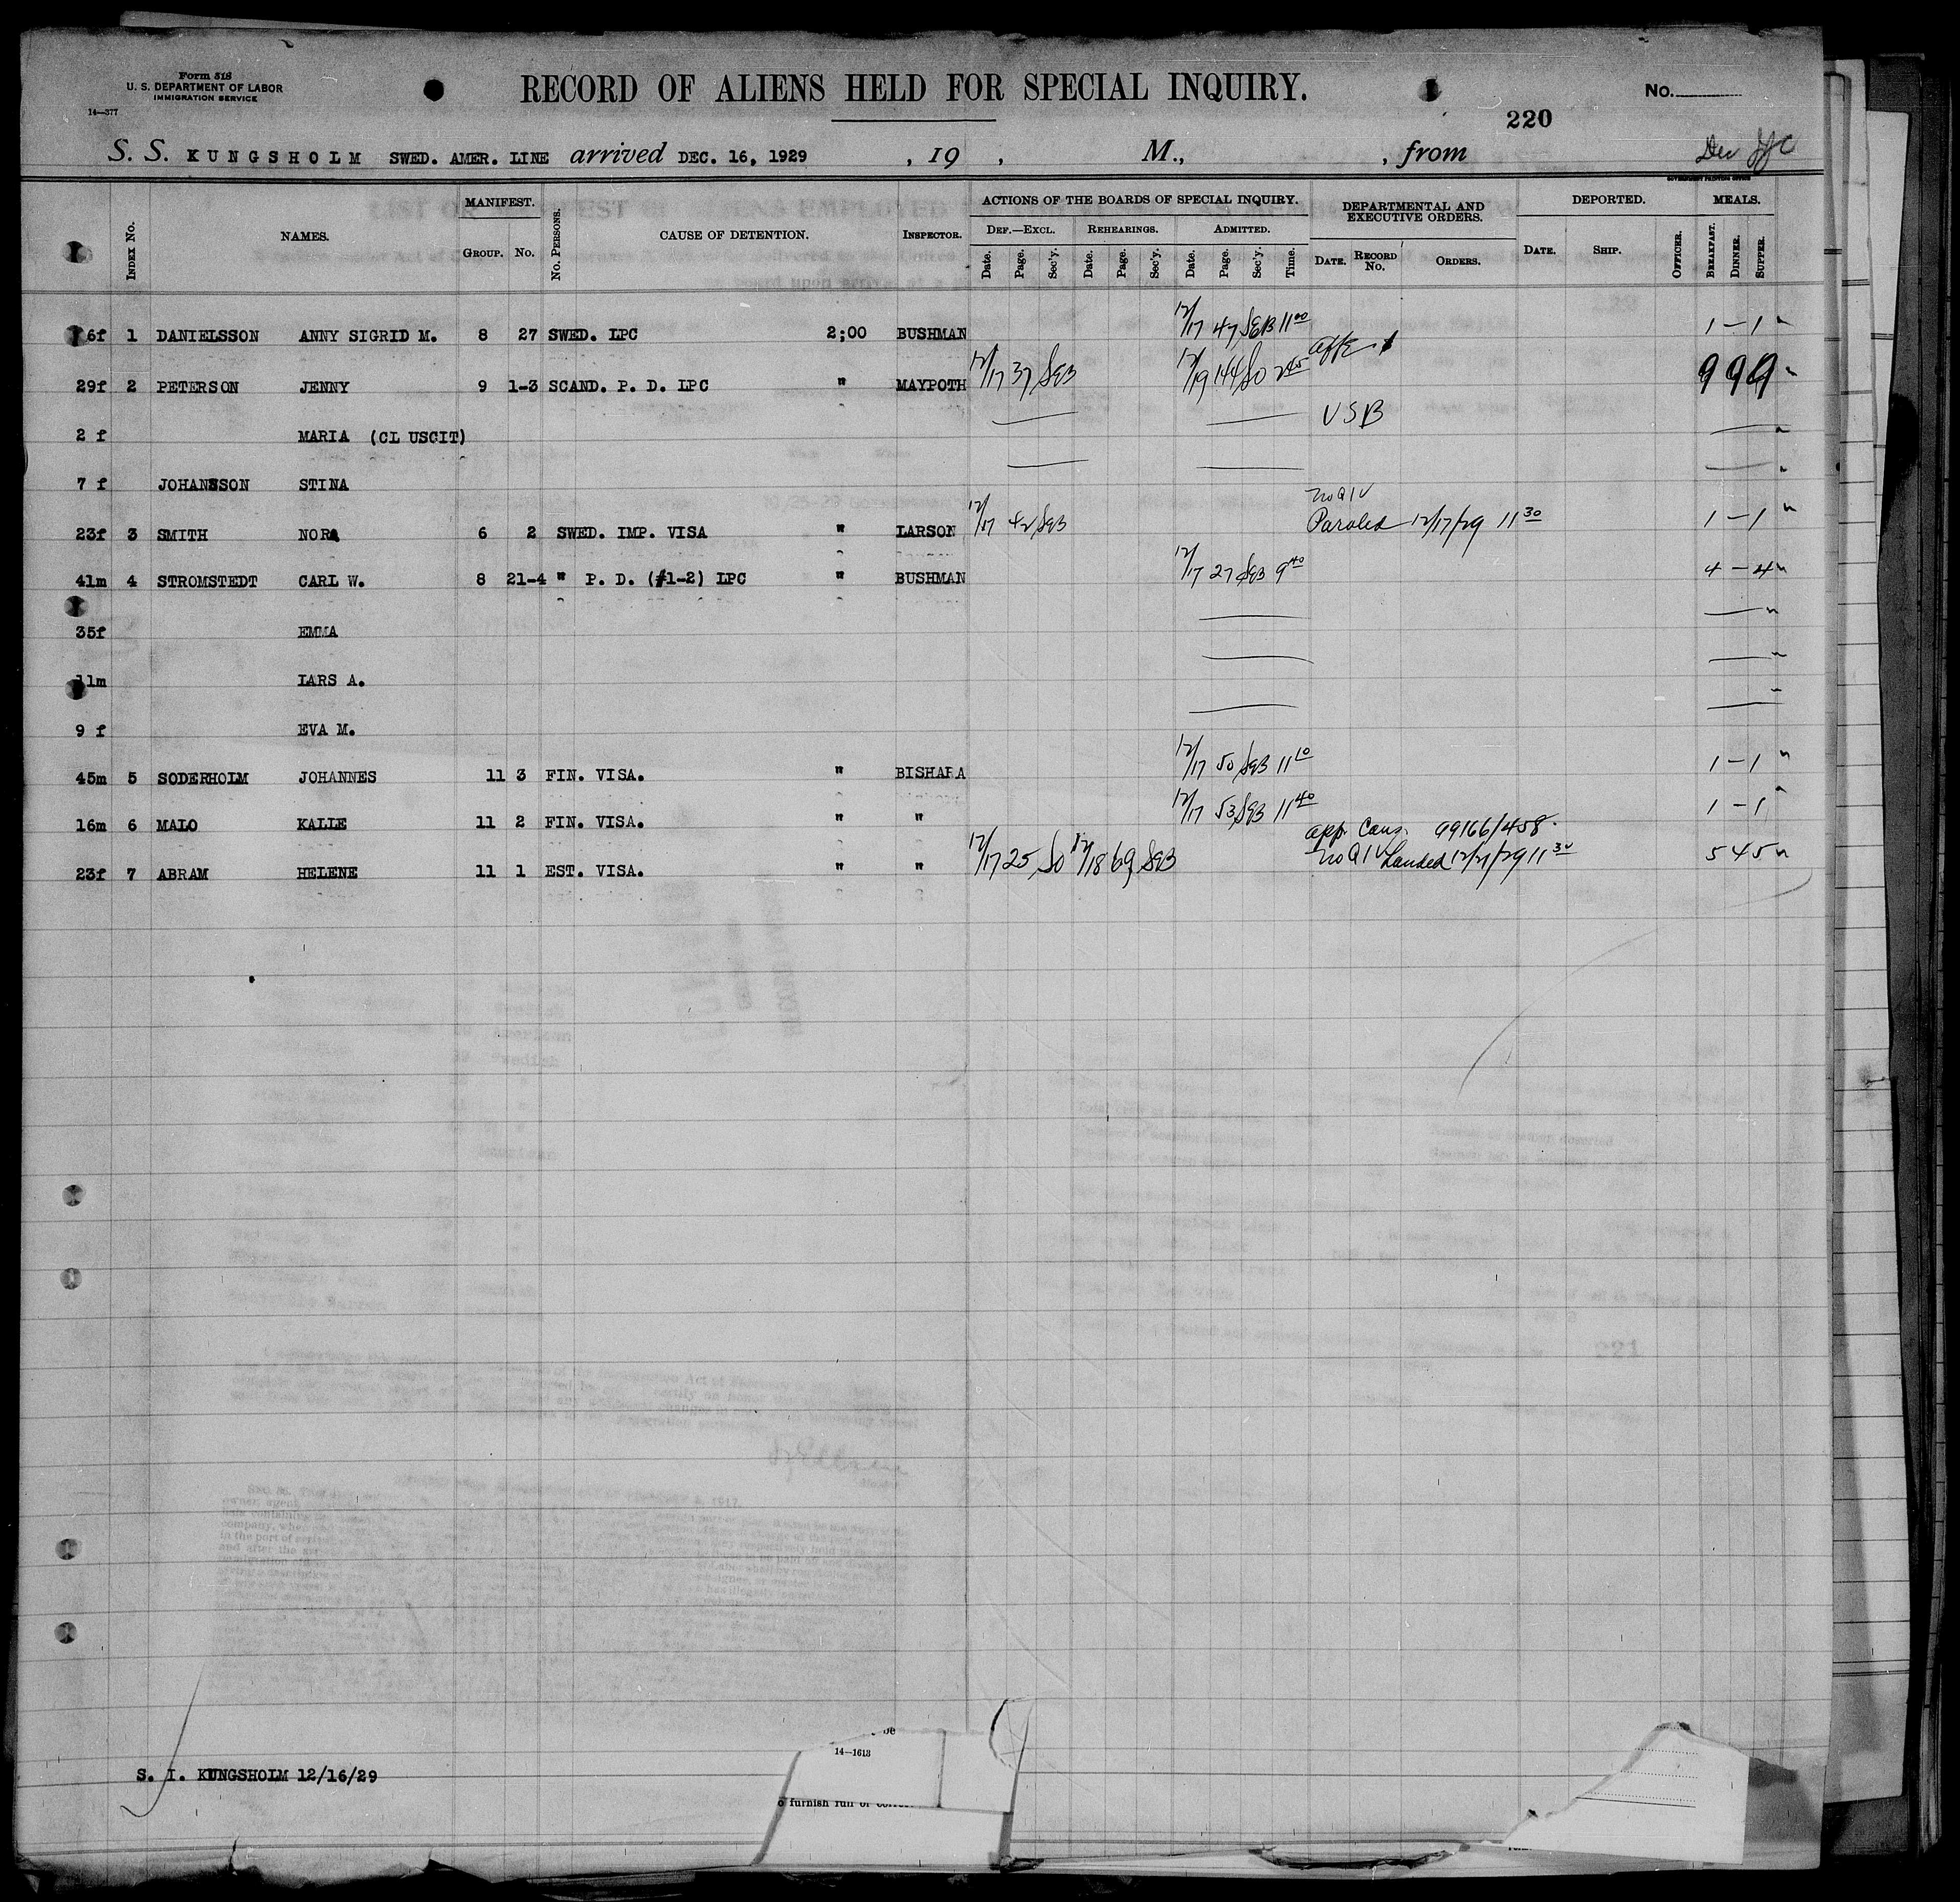 Form 518
U. S. DEPARTMENT OF LABOR
IMMIGRATION SERVICE
14—377
RECORD OF ALIENS HELD FOR SPECIAL INQUIRY.
No.
220
S. S. KUNGSHOLM SWED. AMER. LINE arrived DEC. 16, 1929 , 19 , M., , from
Dev
GOVERNMENT PRINTING OFFICE
INDEX NO. NAMES. MANIFEST. GROUP. NO. NO. PERSONS. CAUSE OF DETENTION. INSPECTOR. ACTIONS OF THE BOARDS OF SPECIAL INQUIRY. DEF.—EXCL. Date. Page. Sec'y. REHEARINGS. Date. Page. Sec'y. ADMITTED. Date. Page. Sec'y. Time. DEPARTMENTAL AND EXECUTIVE ORDERS. DATE. RECORD NO. ORDERS. DEPORTED. DATE. SHIP. OFFICER. MEALS. BREAKFAST. DINNER. SUPPER.
6f 1 DANIELSSON ANNY SIGRID M. 8 27 SWED. LPC 2;00 BUSHMAN 12/17 47 SGB 11 00 1 – 1 "
29f 2 PETERSON JENNY 9 1-3 SCAND. P. D. LPC " MAYPOTH 12/17 37 SGB 12/19 144 SO 2 45 9 9 9 "
2 f MARIA (CL USCIT) USB — "
7 f JOHANSSON STINA — "
23f 3 SMITH NORA 6 2 SWED. IMP. VISA " LARSON 12/17 42 SGB no QIV Paroled 12/17/29 11 30 1 – 1 "
41m 4 STROMSTEDT CARL W. 8 21-4 " P. D. (#1-2) LPC " BUSHMAN 12/17 27 SGB 9 40 4 – 4 "
35f EMMA — "
11m LARS A. — "
9 f EVA M. — "
45m 5 SODERHOLM JOHANNES 11 3 FIN. VISA. " BISHARA 12/17 50 SGB 11 10 1 – 1 "
16m 6 MALO KALLE 11 2 FIN. VISA. " " 12/17 53 SGB 11 40 1 – 1 "
app. Cons. 99166/458
23f 7 ABRAM HELENE 11 1 EST. VISA. " " 12/17 25 SO 12/18 69 SGB no QIV Landed 12/21/29 11 30 5 4 5 "
221
14—1613
S. I. KUNGSHOLM 12/16/29
o furnish full or